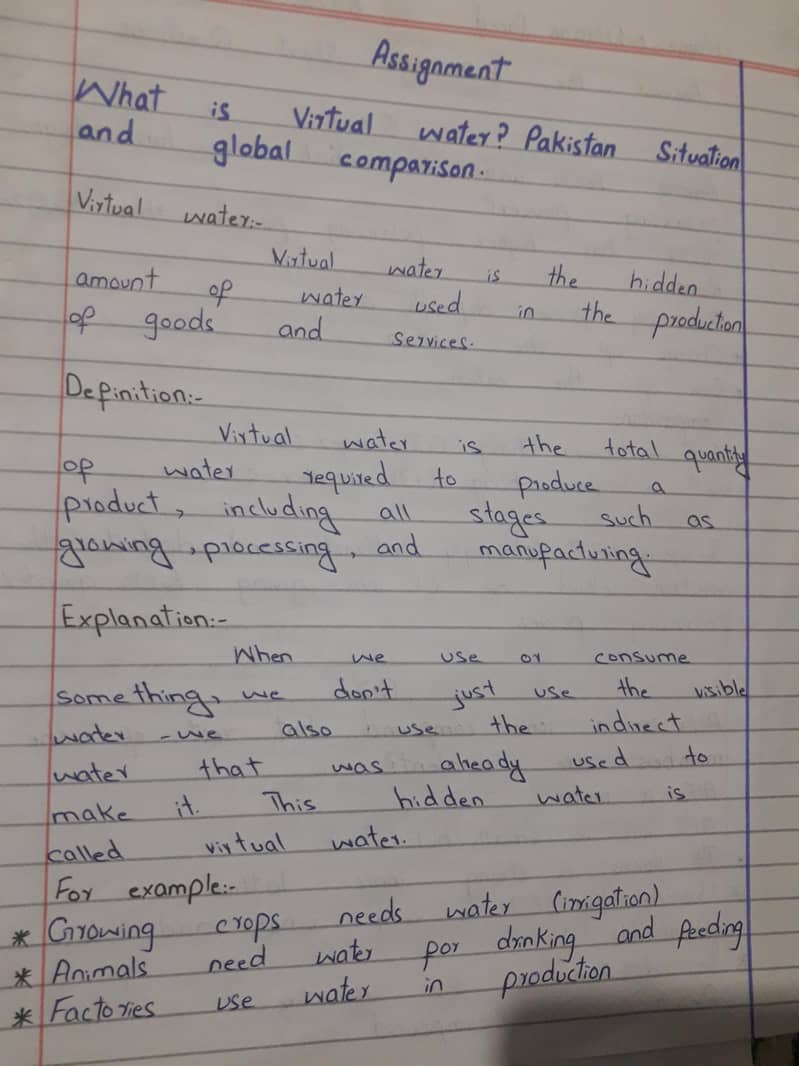 Assignment
What is Virtual water? Pakistan Situation
and global comparison.
Virtual water:-
Virtual water is the hidden
amount of water used in the production
of goods and services.
Definition:-
Virtual water is the total quantity
of water required to produce a
product, including all stages such as
growing, processing, and manufacturing.
Explanation:-
When we use or consume
something, we don't just use the visible
water - we also use the indirect
water that was already used to
make it. This hidden water is
called virtual water.
For example:-
* Growing crops needs water (irrigation)
* Animals need water for drinking and feeding
* Factories use water in production